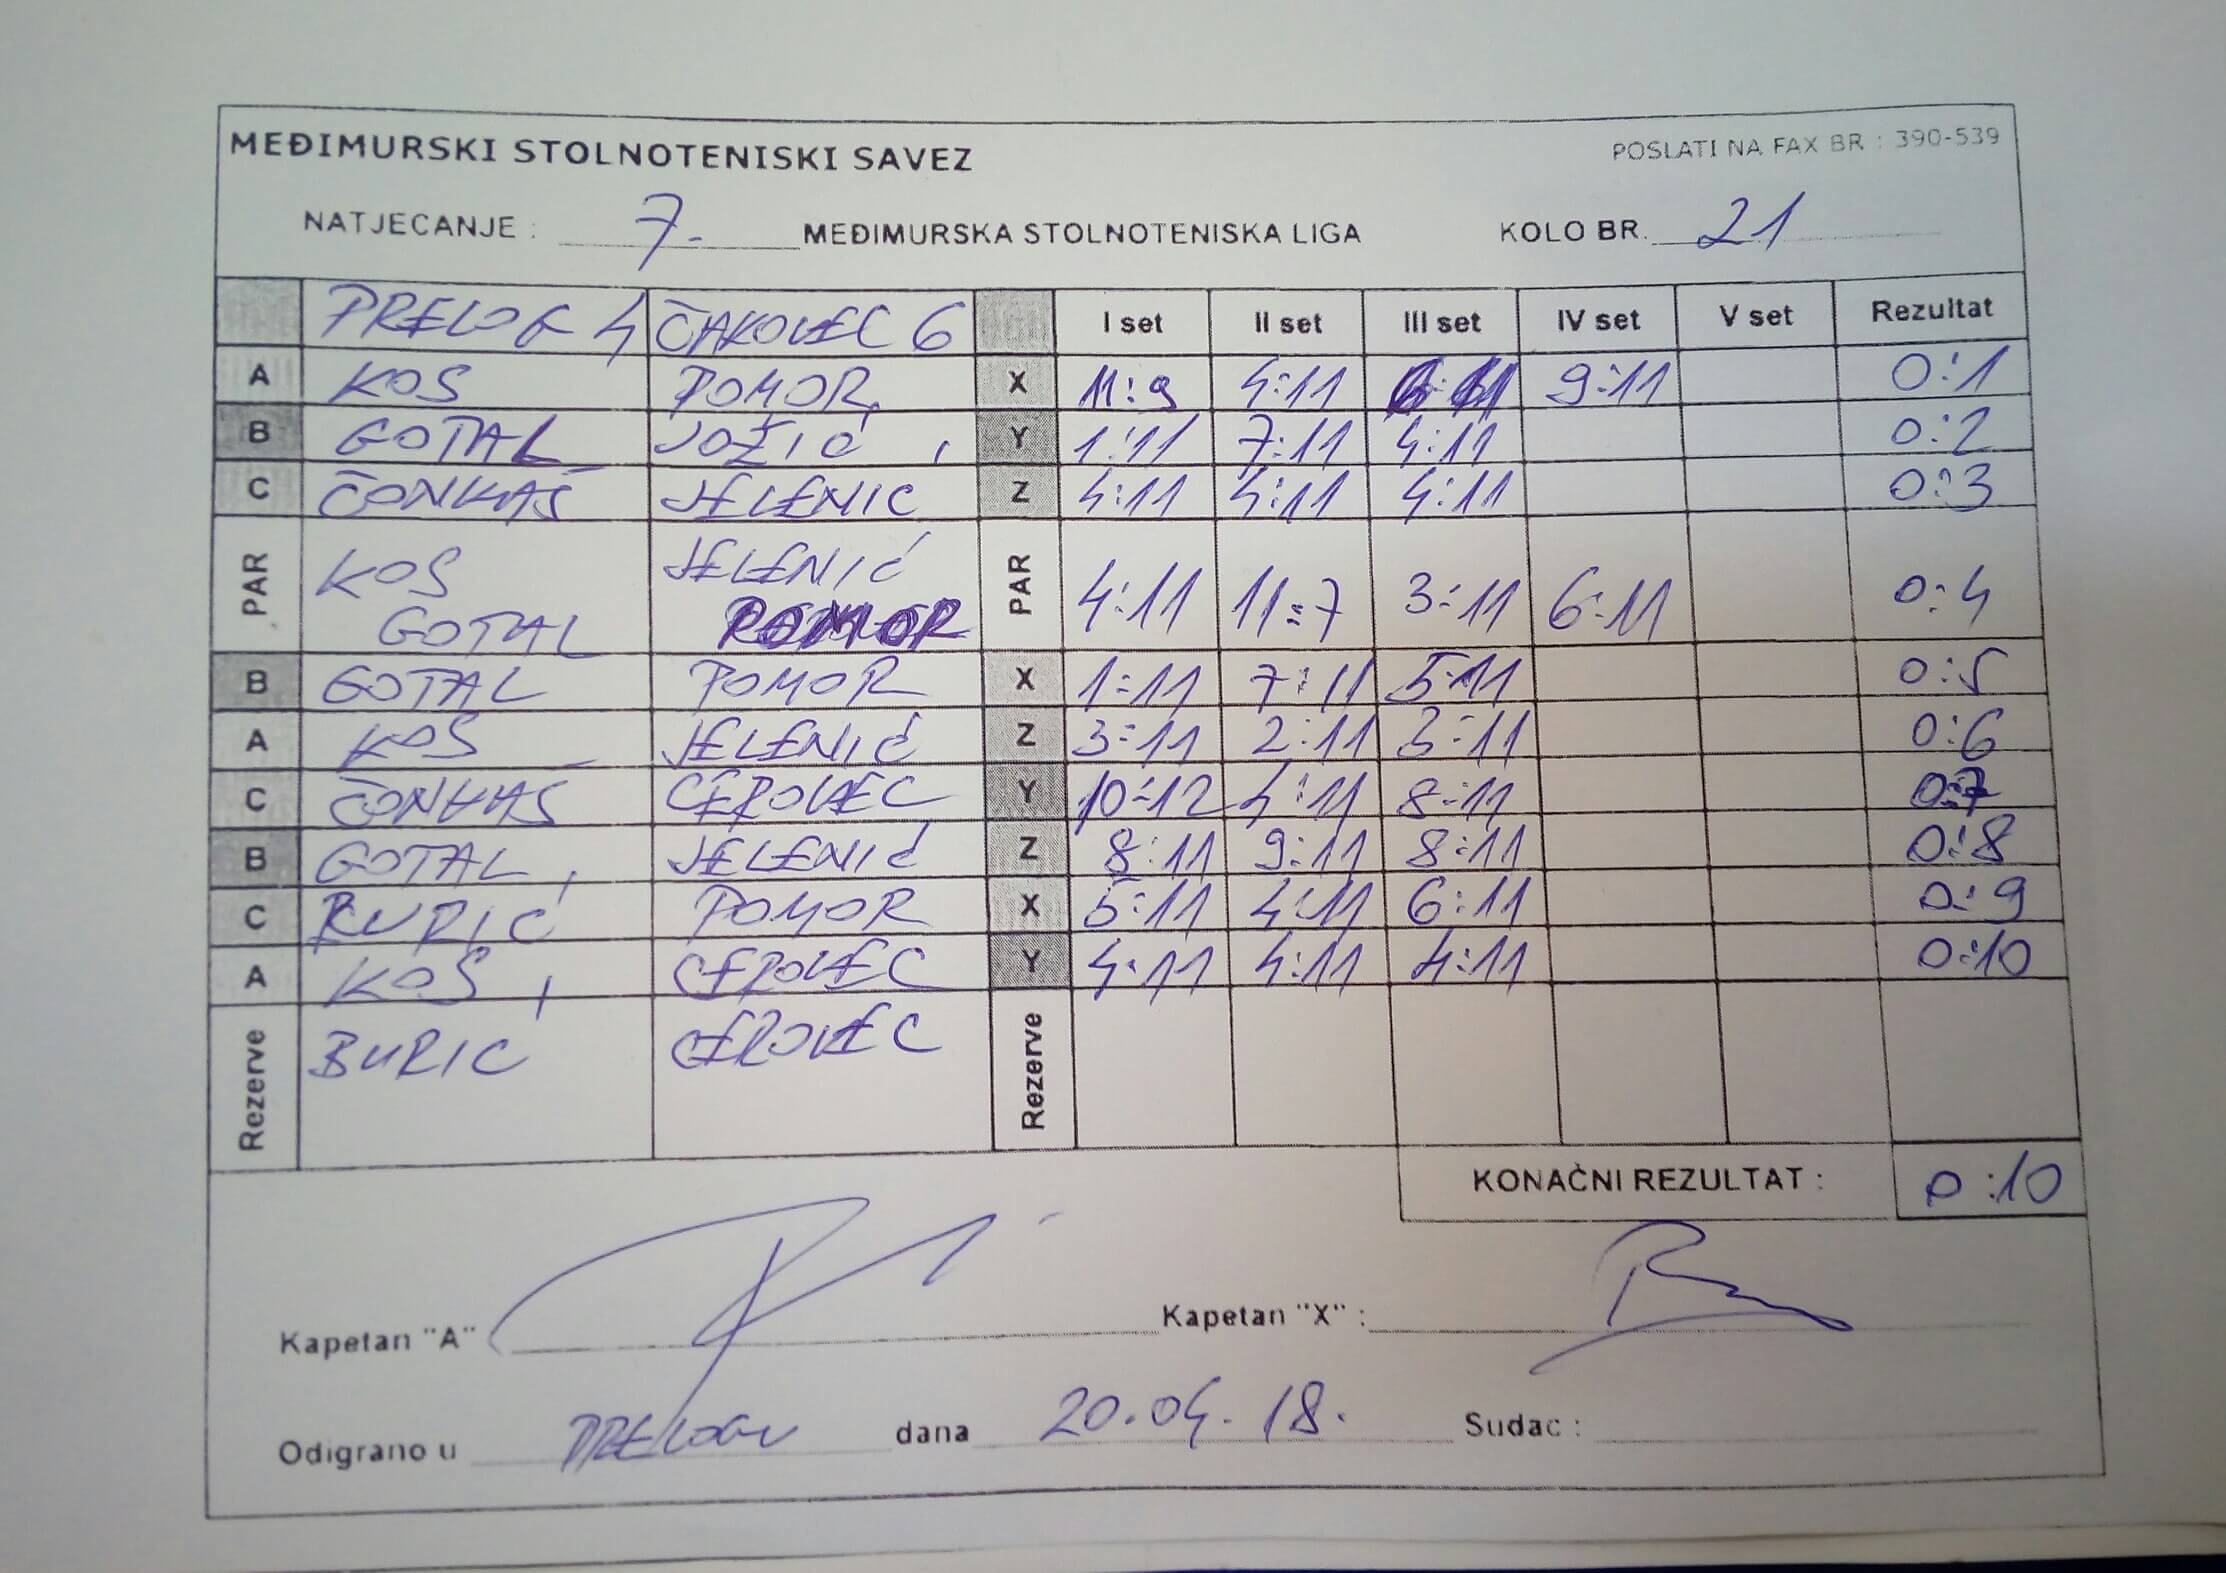 MEĐIMURSKI STOLNOTENISKI SAVEZ POSLATI NA FAX BR : 390-539
NATJECANJE : 7. MEĐIMURSKA STOLNOTENISKA LIGA KOLO BR. 21
PRELOG 4 ČAKOVEC 6 I set II set III set IV set V set Rezultat
A KOS POMOR X 11:9 4:11 6:11 9:11 0:1
B GOTAL JOŽIĆ Y 1:11 7:11 4:11 0:2
C ČONKAŠ JELENIC Z 4:11 4:11 4:11 0:3
PAR KOS JELENIĆ PAR 4:11 11:7 3:11 6:11 0:4
GOTAL POMOR
B GOTAL POMOR X 1:11 7:11 5:11 0:5
A KOS JELENIĆ Z 3:11 2:11 3:11 0:6
C ČONKAŠ CEROVEC Y 10:12 4:11 8:11 0:7
B GOTAL JELENIĆ Z 8:11 9:11 8:11 0:8
C BURIĆ POMOR X 5:11 4:11 6:11 0:9
A KOS CEROVEC Y 4:11 4:11 4:11 0:10
Rezerve BURIC CEROVEC Rezerve
KONAČNI REZULTAT : 0:10
Kapetan "A" Kapetan "X" :
Odigrano u PRELOGU dana 20.04.18. Sudac :